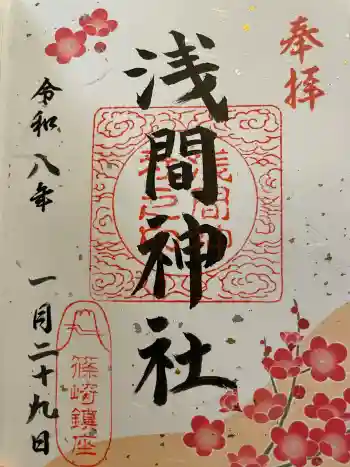 奉拝
浅間神社
令和八年 一月二十九日
篠崎鎮座